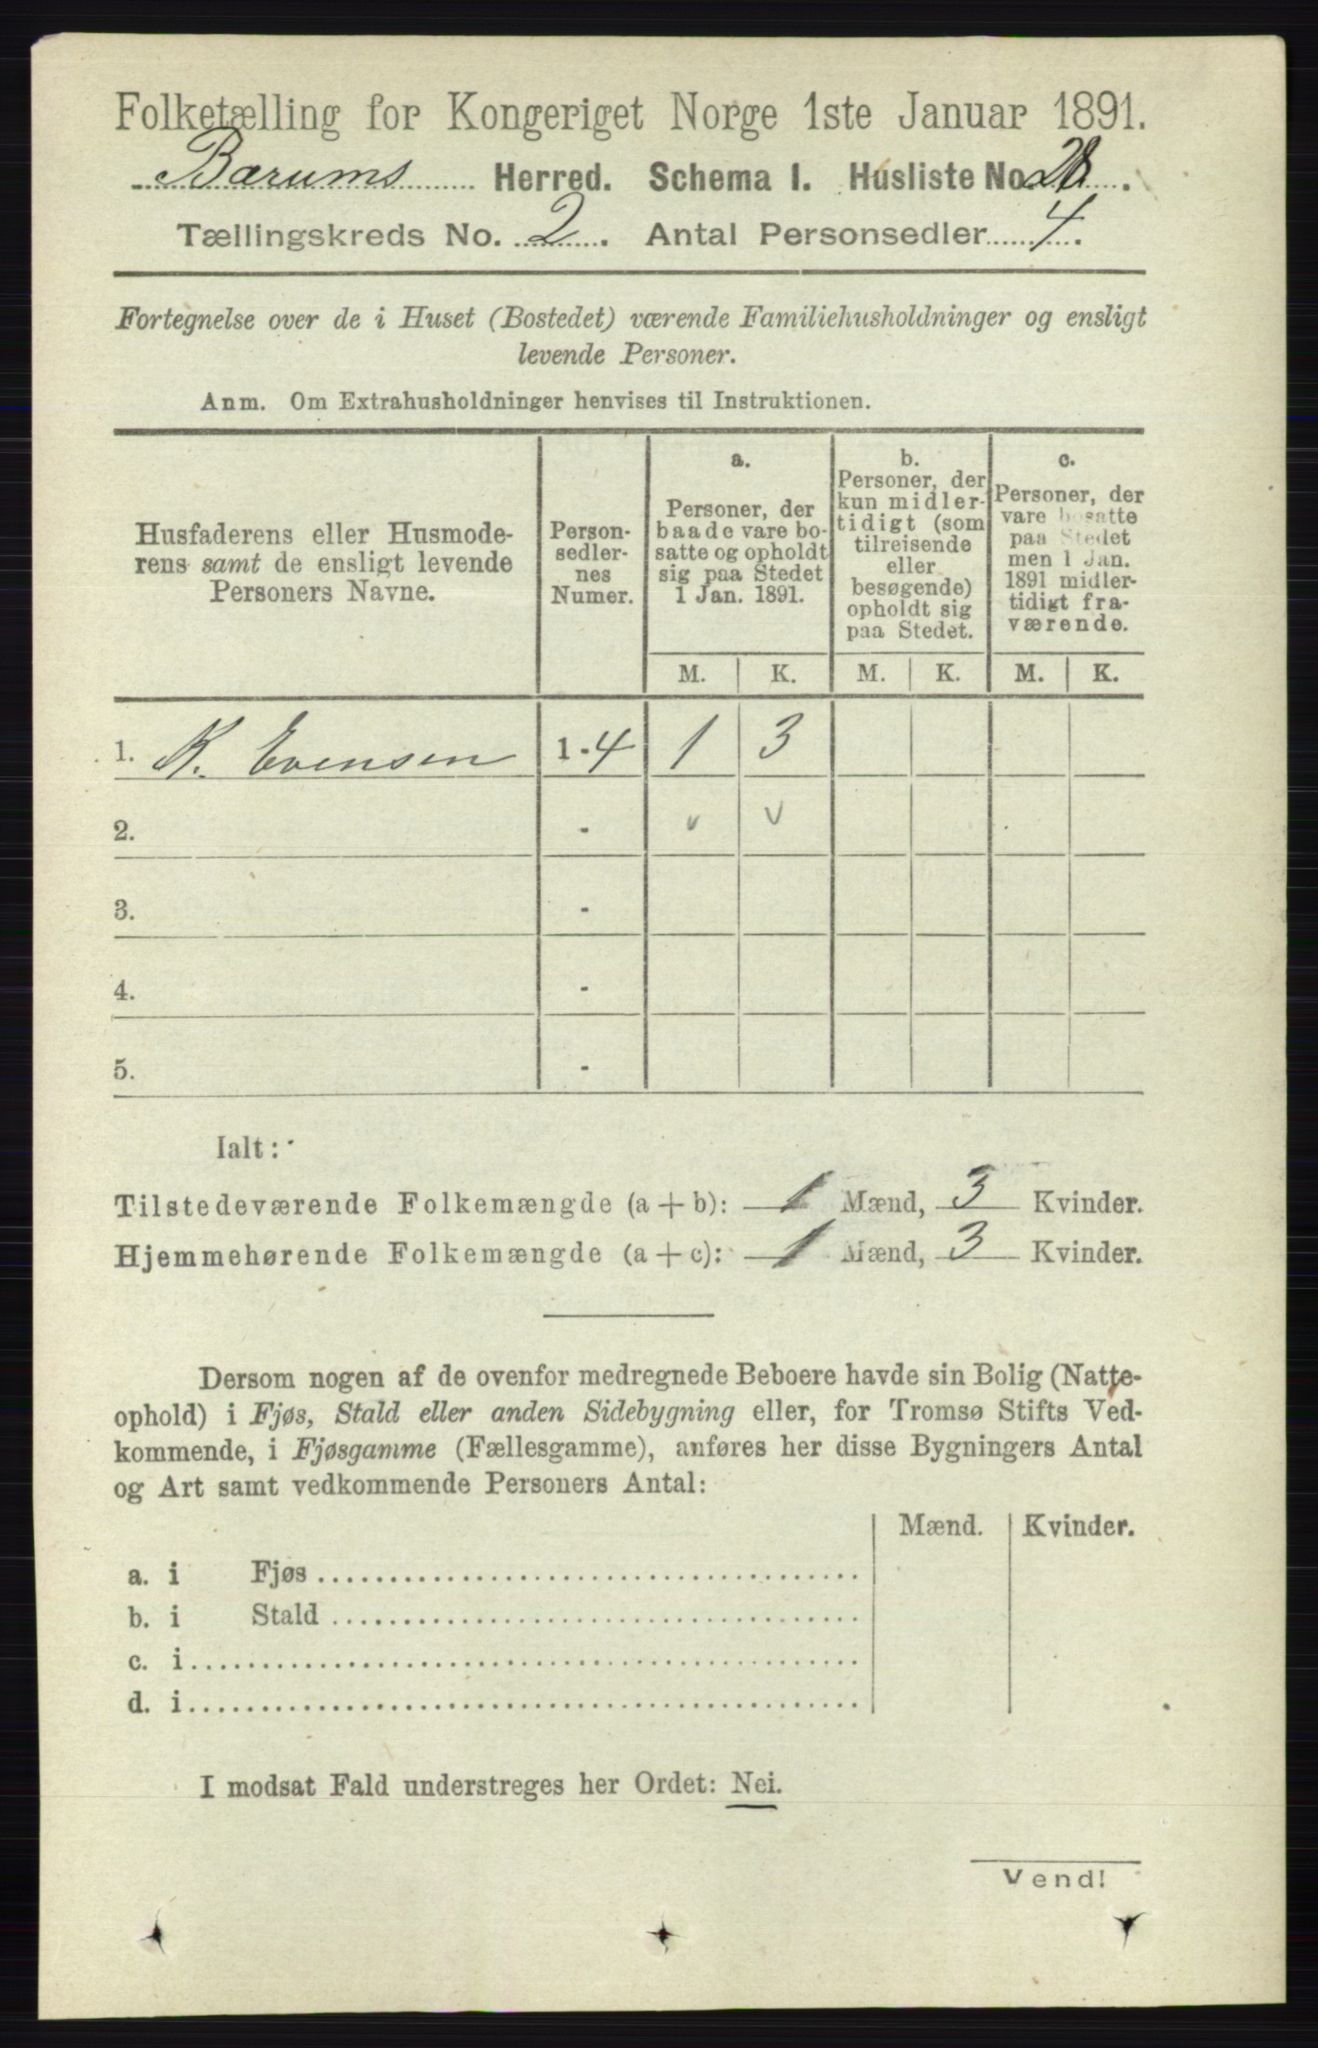 Folketælling for Kongeriget Norge 1ste Januar 1891.
Bærums Herred. Schema I. Husliste No.
Tællingskreds No. 2. Antal Personsedler 4.
Fortegnelse over de i Huset (Bostedet) værende Familiehusholdninger og ensligt
levende Personer.
Anm. Om Extrahusholdninger henvises til Instruktionen.
Husfaderens eller Husmode-
rens samt de ensligt levende
Personers Navne.
Person-
sedler-
nes
Numer.
a.
Personer, der
baade vare bo-
satte og opholdt
sig paa Stedet
1 Jan. 1891.
b.
Personer, der
kun midler-
tidigt (som
tilreisende
eller
besøgende)
opholdt sig
paa Stedet.
c.
Personer, der
vare bosatte
paa Stedet
men 1 Jan.
1891 midler-
tidigt fra-
værende.
M. K. M. K. M. K.
1. K. Evensen 1-4 1 3
2. - v v
3. -
4. -
5. -
Ialt:
Tilstedeværende Folkemængde (a + b): 1 Mænd, 3 Kvinder.
Hjemmehørende Folkemængde (a + c): 1 Mænd, 3 Kvinder.
Dersom nogen af de ovenfor medregnede Beboere havde sin Bolig (Natte-
ophold) i Fjøs, Stald eller anden Sidebygning eller, for Tromsø Stifts Ved-
kommende, i Fjøsgamme (Fællesgamme), anføres her disse Bygningers Antal
og Art samt vedkommende Personers Antal:
Mænd. Kvinder.
a. i Fjøs
b. i Stald
c. i
d. i
I modsat Fald understreges her Ordet: Nei.
Vend!